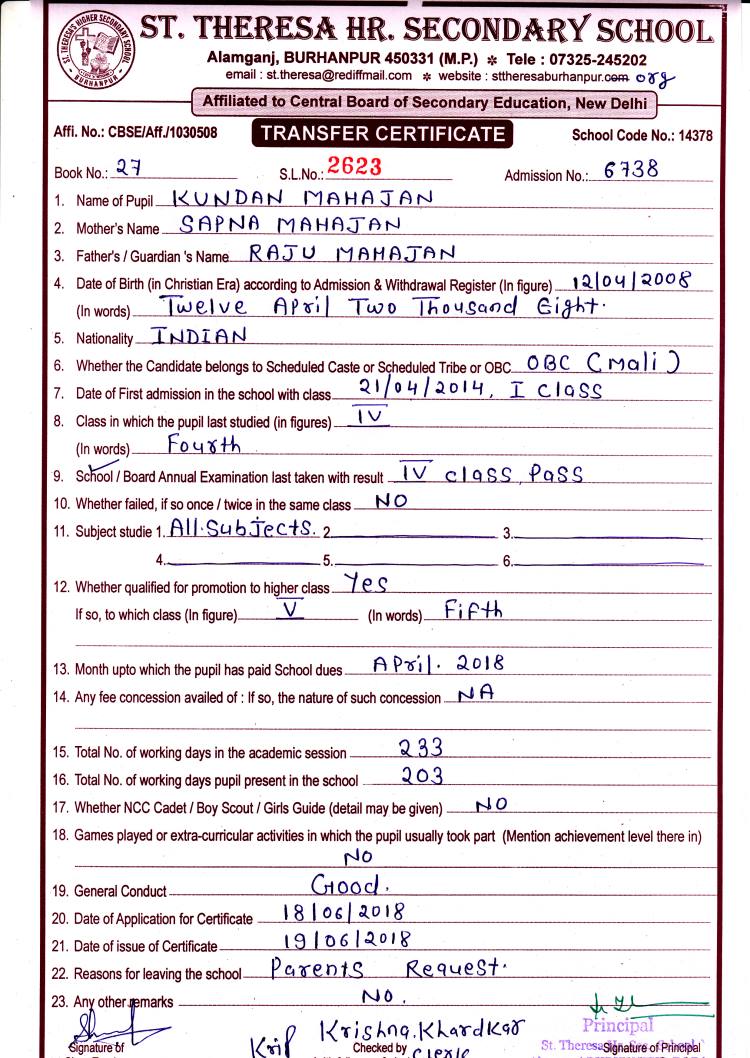 ST. THERESA'S HIGHER SECONDARY SCHOOL
BURHANPUR
ST. THERESA HR. SECONDARY SCHOOL
Alamganj, BURHANPUR 450331 (M.P.) ✻ Tele : 07325-245202
email : st.theresa@rediffmail.com ✻ website : sttheresaburhanpur.com org
Affiliated to Central Board of Secondary Education, New Delhi
Affi. No.: CBSE/Aff./1030508 TRANSFER CERTIFICATE School Code No.: 14378
Book No.: 27 S.L.No.: 2623 Admission No.: 6738
1. Name of Pupil KUNDAN MAHAJAN
2. Mother's Name SAPNA MAHAJAN
3. Father's / Guardian 's Name RAJU MAHAJAN
4. Date of Birth (in Christian Era) according to Admission & Withdrawal Register (In figure) 12/04/2008
(In words) Twelve April Two Thousand Eight.
5. Nationality INDIAN
6. Whether the Candidate belongs to Scheduled Caste or Scheduled Tribe or OBC OBC (Mali)
7. Date of First admission in the school with class 21/04/2014, I class
8. Class in which the pupil last studied (in figures) IV
(In words) Fourth
9. School / Board Annual Examination last taken with result IV class, Pass
10. Whether failed, if so once / twice in the same class NO
11. Subject studie 1. All Subjects. 2. 3.
4. 5. 6.
12. Whether qualified for promotion to higher class Yes
If so, to which class (In figure) V (In words) Fifth
13. Month upto which the pupil has paid School dues April. 2018
14. Any fee concession availed of : If so, the nature of such concession NA
15. Total No. of working days in the academic session 233
16. Total No. of working days pupil present in the school 203
17. Whether NCC Cadet / Boy Scout / Girls Guide (detail may be given) NO
18. Games played or extra-curricular activities in which the pupil usually took part (Mention achievement level there in)
NO
19. General Conduct Good.
20. Date of Application for Certificate 18/06/2018
21. Date of issue of Certificate 19/06/2018
22. Reasons for leaving the school Parents Request.
23. Any other remarks NO.
Krishna. Khardkar
Principal
Signature of Checked by Clerk St. Theresa Signature of Principal